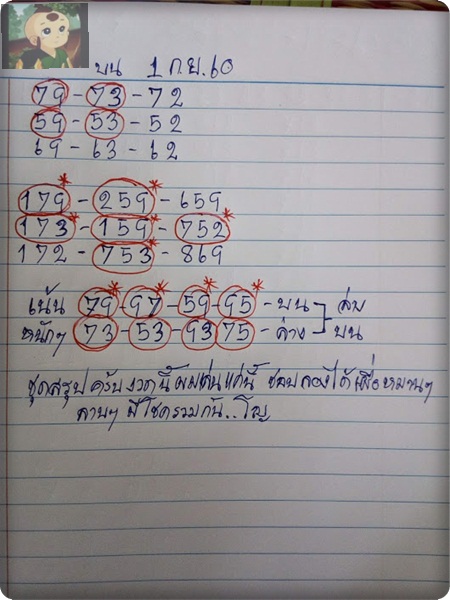 บน 1 ก.ย. 60
79 - 73 - 72
59 - 53 - 52
69 - 63 - 62
179* - 259* - 659
173* - 159* - 752*
172 - 753* - 869
เน้น 79* - 97* - 59* - 95* - บน ล่าง
หนักๆ 73 - 53 - 93 75 - ล่าง บน
ชุดสรุป ครับ งวดนี้ ผมเล่นแค่นี้ ชอบลองได้ เผื่อหมานๆ
ลาบๆ มีโชครวมกัน..